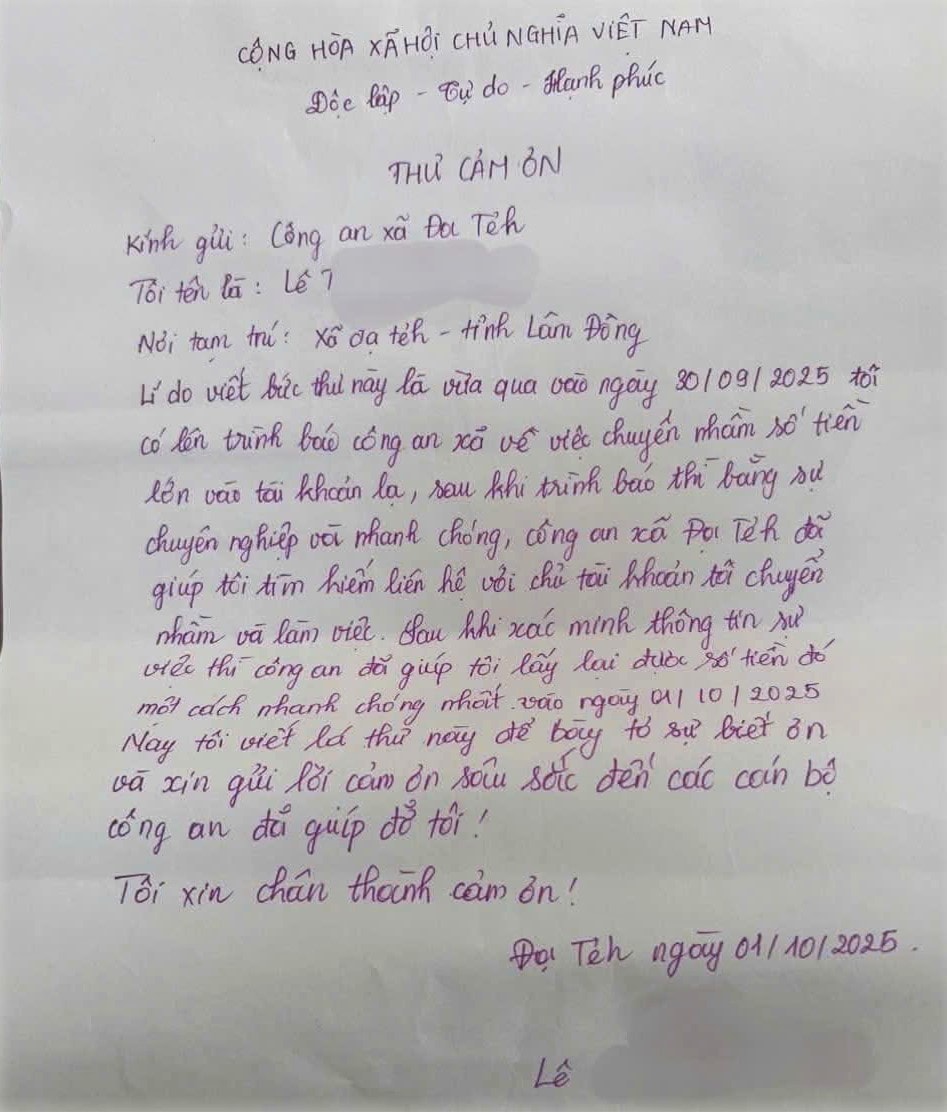 CỘNG HÒA XÃ HỘI CHỦ NGHĨA VIỆT NAM
Độc lập - Tự do - Hạnh phúc
THƯ CẢM ƠN
Kính gửi: Công an xã Đạ Tẻh
Tôi tên là: Lê
Nơi tạm trú: Xã Đạ tẻh - tỉnh Lâm Đồng
Lí do viết bức thư này là vừa qua vào ngày 30/09/2025 tôi
có lên trình báo công an xã về việc chuyển nhầm số tiền
lớn vào tài khoản lạ, sau khi trình báo thì bằng sự
chuyên nghiệp và nhanh chóng, công an xã Đạ Tẻh đã
giúp tôi tìm kiếm liên hệ với chủ tài khoản tôi chuyển
nhầm và làm việc. Sau khi xác minh thông tin sự
việc thì công an đã giúp tôi lấy lại được số tiền đó
một cách nhanh chóng nhất vào ngày 01/10/2025
Nay tôi viết lá thư này để bày tỏ sự biết ơn
và xin gửi lời cảm ơn sâu sắc đến các cán bộ
công an đã giúp đỡ tôi!
Tôi xin chân thành cảm ơn!
Đạ Tẻh ngày 01/10/2025.
Lê